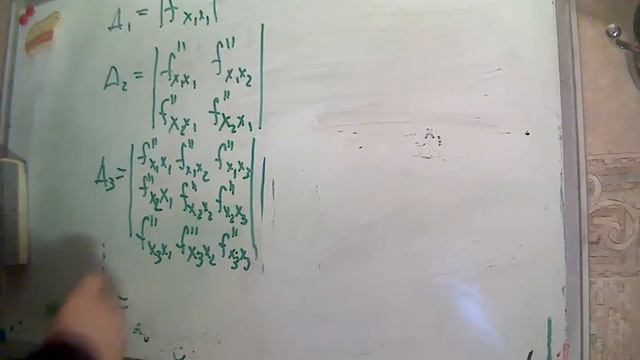 Δ₁ = |f″ₓ₁ₓ₁|
Δ₂ = | f″ₓ₁ₓ₁ f″ₓ₁ₓ₂ |
| f″ₓ₂ₓ₁ f″ₓ₂ₓ₁ |
Δ₃ = | f″ₓ₁ₓ₁ f″ₓ₁ₓ₂ f″ₓ₁ₓ₃ |
| f″ₓ₂ₓ₁ f″ₓ₂ₓ₂ f″ₓ₂ₓ₃ |
| f″ₓ₃ₓ₁ f″ₓ₃ₓ₂ f″ₓ₃ₓ₃ |